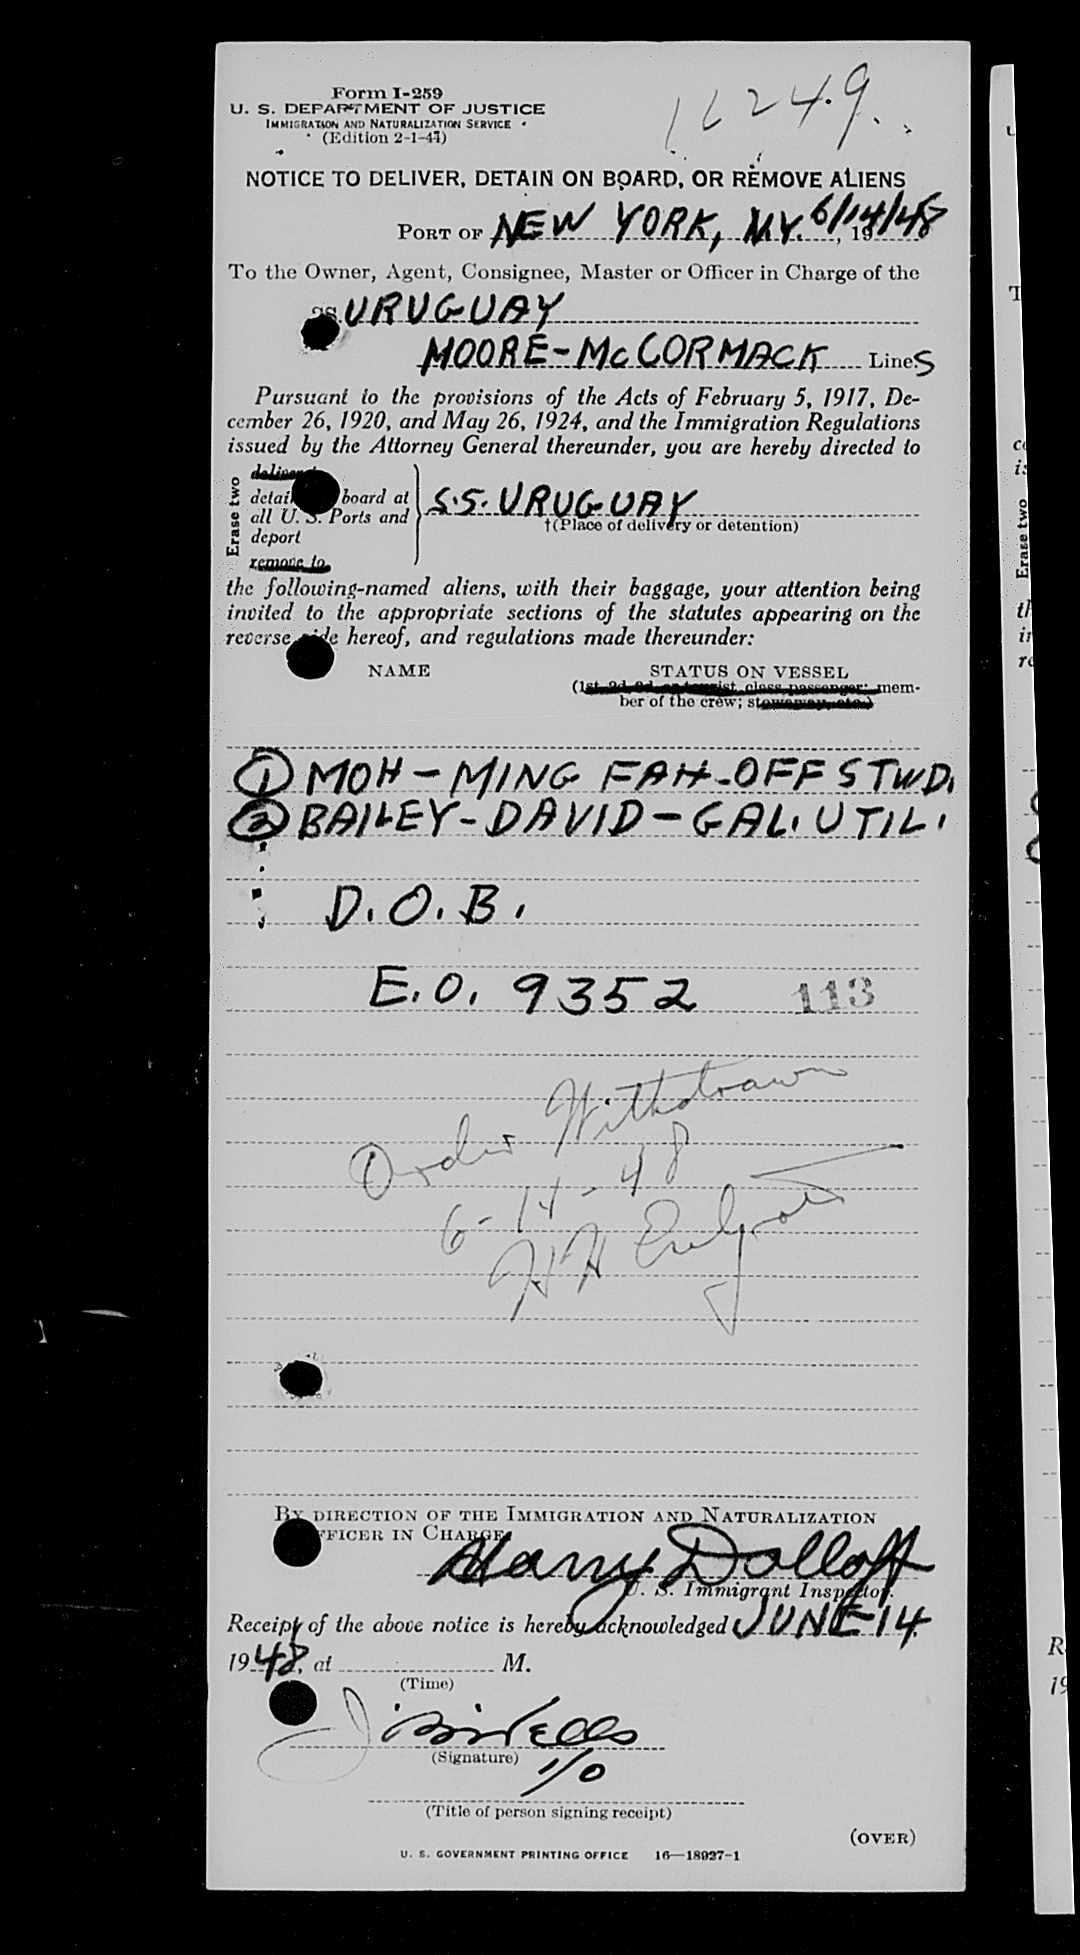 Form I-259
U. S. DEPARTMENT OF JUSTICE
IMMIGRATION AND NATURALIZATION SERVICE
(Edition 2-1-41)
12249.
NOTICE TO DELIVER, DETAIN ON BOARD, OR REMOVE ALIENS
PORT OF NEW YORK, N.Y. 6/14/48, 19
To the Owner, Agent, Consignee, Master or Officer in Charge of the
SS. URUGUAY
MOORE-McCORMACK Lines
Pursuant to the provisions of the Acts of February 5, 1917, De-
cember 26, 1920, and May 26, 1924, and the Immigration Regulations
issued by the Attorney General thereunder, you are hereby directed to
Erase two
deliver
detain board at
all U. S. Ports and
deport
remove to
S.S. URUGUAY
†(Place of delivery or detention)
the following-named aliens, with their baggage, your attention being
invited to the appropriate sections of the statutes appearing on the
reverse side hereof, and regulations made thereunder:
NAME STATUS ON VESSEL
(1st, 2d, 3d, or tourist class passenger; mem-
ber of the crew; stowaway, etc.)
① MOH-MING FAH-OFF STWD.
② BAILEY-DAVID-GAL. UTIL.
D.O.B.
E.O. 9352 113
Order Withdrawn
6-14-48
HH
BY DIRECTION OF THE IMMIGRATION AND NATURALIZATION
OFFICER IN CHARGE
Harry Dolloff
U. S. Immigrant Inspector.
Receipt of the above notice is hereby acknowledged JUNE 14
1948, at M.
(Time)
(Signature)
1/O
(Title of person signing receipt)
(OVER)
U. S. GOVERNMENT PRINTING OFFICE 16—18927-1